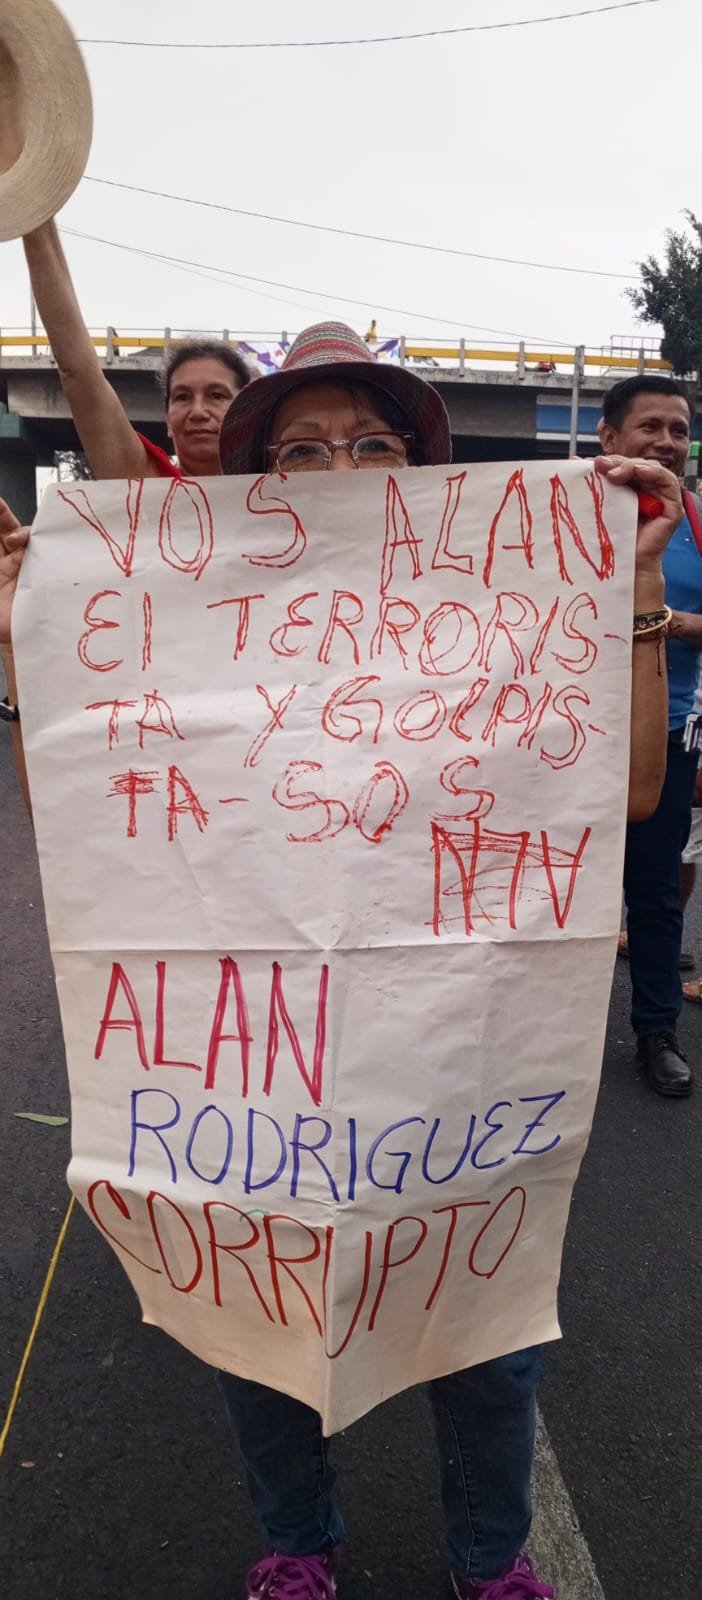 VOS ALAN
El TERRORIS-
TA Y GOLPIS-
TA - SOS
ALAN
RODRIGUEZ
CORRUPTO